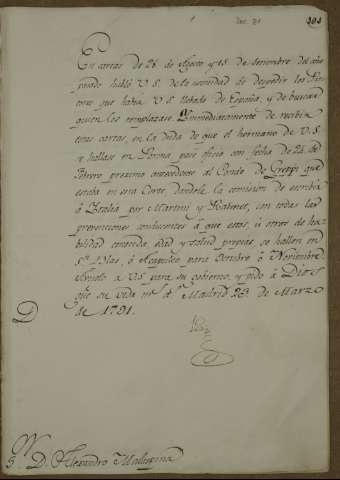 Doc. 21
404
En cartas de 28 de Agosto y 15 de Setiembre del año
pasado habló V.S. de la necesidad de despedir los Pin-
tores que habia V.S. llebado de España, y de buscar
quien los remplazase. Inmediatamente de recibir
estas cartas, en la duda de que el hermano de V.S.
se hallase en Parma pasé oficio con fecha de 24 de
Febrero proximo antecedente al Conde de Greppi que
estaba en esta Corte dandole la comision de escribir
á Italia por Martini y Rabenet, con todas las
prevenciones conducentes á que estos, ú otros de ha-
bilidad conocida, edad y salud propias se hallen en
Sn Blas, ó Acapulco para Octubre ó Noviembre.
Avisolo a VS para su gobierno, y pido á Dios
gue su vida ms as Madrid 23 de Marzo
de 1791.
S. D. Alexandro Malaspina